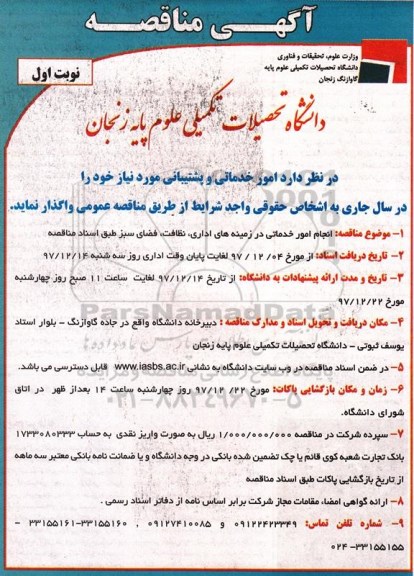 آگهی مناقصه
وزارت علوم، تحقیقات و فناوری
دانشگاه تحصیلات تکمیلی علوم پایه
گاوازنگ زنجان
نوبت اول
دانشگاه تحصیلات تکمیلی علوم پایه زنجان
در نظر دارد امور خدماتی و پشتیبانی مورد نیاز خود را
در سال جاری به اشخاص حقوقی واجد شرایط از طریق مناقصه عمومی واگذار نماید.
۱- موضوع مناقصه: انجام امور خدماتی در زمینه های اداری، نظافت، فضای سبز طبق اسناد مناقصه
۲- تاریخ دریافت اسناد: از مورخ ۱۲/۰۴ / ۹۷ لغایت پایان وقت اداری روز سه شنبه ۹۷/۱۲/۱۴
۳- تاریخ و مدت ارائه پیشنهادات به دانشگاه: از تاریخ ۹۷/۱۲/۱۴ لغایت ساعت ۱۱ صبح روز چهارشنبه
مورخ ۹۷/۱۲/۲۲
۴- مکان دریافت و تحویل اسناد و مدارک مناقصه : دبیرخانه دانشگاه واقع در جاده گاوازنگ - بلوار استاد
یوسف ثبوتی - دانشگاه تحصیلات تکمیلی علوم پایه زنجان
۵- در ضمن اسناد مناقصه در وب سایت دانشگاه به نشانی www.iasbs.ac.ir قابل دسترسی می باشد.
۶- زمان و مکان بازگشایی پاکات: مورخ ۲۲/ ۹۷/۱۲ روز چهارشنبه ساعت ۱۴ بعداز ظهر در اتاق
شورای دانشگاه.
۷- سپرده شرکت در مناقصه ۱/۰۰۰/۰۰۰/۰۰۰ ریال به صورت واریز نقدی به حساب ۱۷۳۳۰۸۰۳۳۳
بانک تجارت شعبه کوی قائم یا چک تضمین شده بانکی در وجه دانشگاه و یا ضمانت نامه بانکی معتبر سه ماهه
از تاریخ بازگشایی پاکات طبق اسناد مناقصه
۸- ارائه گواهی امضاء مقامات مجاز شرکت برابر اساس نامه از دفاتر اسناد رسمی .
۹- شماره تلفن تماس: ۰۹۱۲۲۴۲۳۳۴۹ و ۰۹۱۲۷۴۱۰۰۸۵ , ۳۳۱۵۵۱۶۰-۳۳۱۵۵۱۶۱ -
۳۳۱۵۵۱۵۵-۰۲۴
ParsNamadData
۰۲۱-۸۸۳۴۹۶۷۰-۵